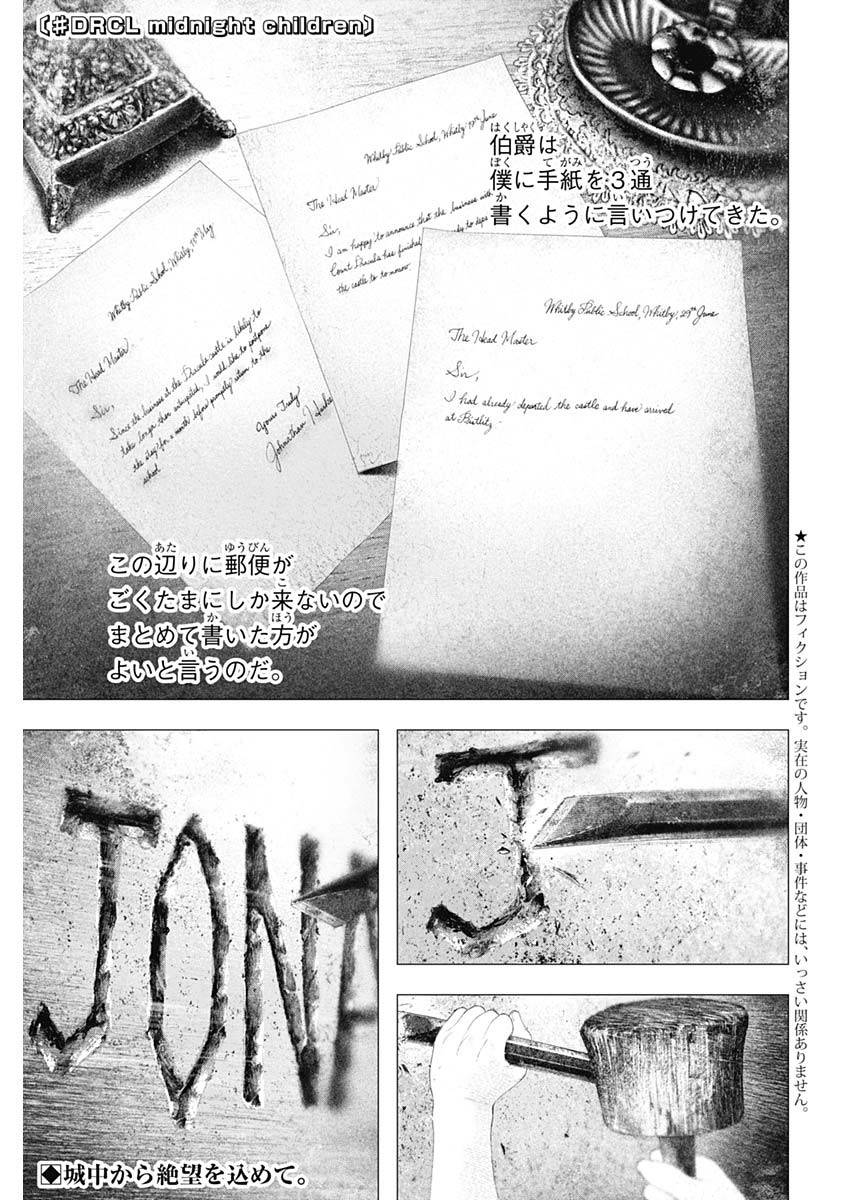 【#DRCL midnight children】
伯爵は
僕に手紙を３通
書くように言いつけてきた。
Whitby Public School, Whitby, 29th June
The Head Master
Sir,
I had already departed the castle and have arrived
at Bistritz.
Whitby Public School, Whitby 19th June
The Head Master
Sir,
I am happy to announce that the business with
Count Dracula has finished
the castle to to morrow.
Whitby Public School, Whitby,
The Head Master
Sir,
Since the business at the Dracula castle is likely to
take longer than anticipated, I would like to postpone
the stay for a month before promptly return to the
school
Yours Truly
Johnathan
この辺りに郵便が
ごくたまにしか来ないので
まとめて書いた方が
よいと言うのだ。
★この作品はフィクションです。実在の人物・団体・事件などには、いっさい関係ありません。
J
JONA
◆城中から絶望を込めて。